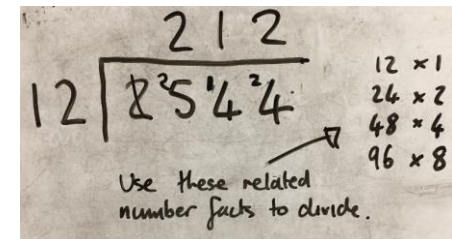 2 1 2
12 2 ²5 ¹4 ²4
12 × 1
24 × 2
48 × 4
96 × 8
Use these related
number facts to divide.